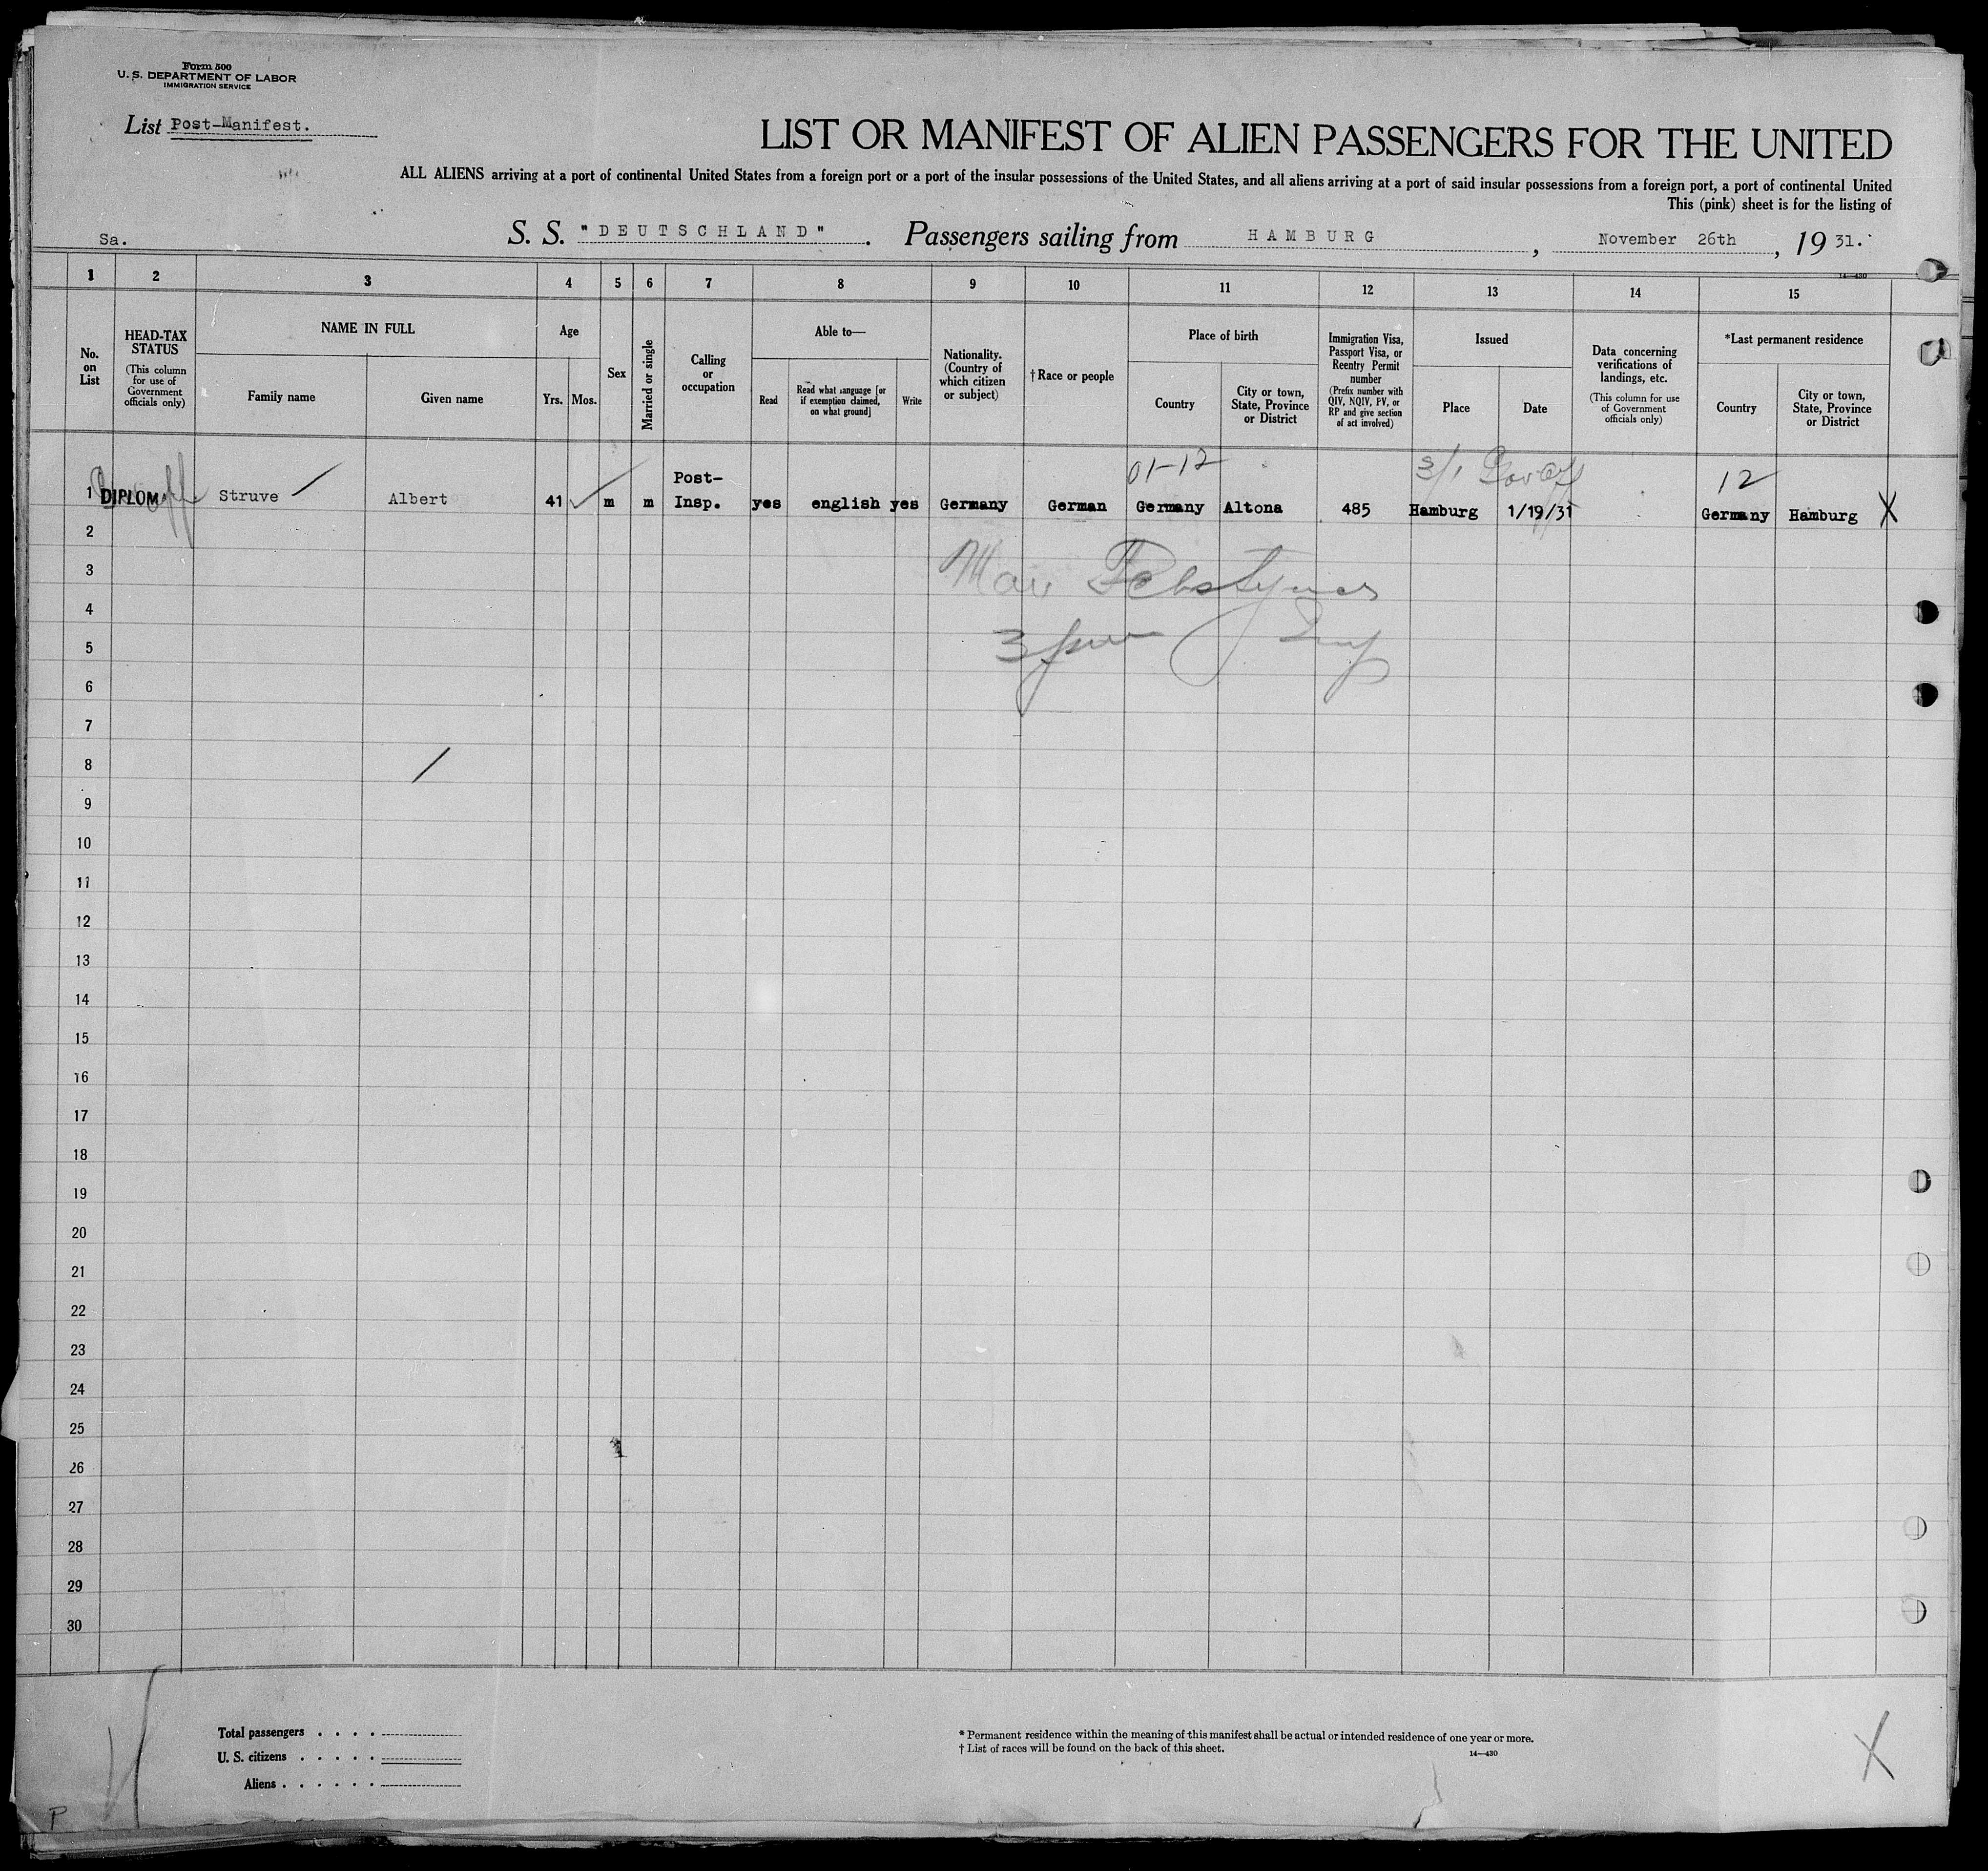 Form 500
U. S. DEPARTMENT OF LABOR
IMMIGRATION SERVICE
List Post-Manifest.
LIST OR MANIFEST OF ALIEN PASSENGERS FOR THE UNITED
ALL ALIENS arriving at a port of continental United States from a foreign port or a port of the insular possessions of the United States, and all aliens arriving at a port of said insular possessions from a foreign port, a port of continental United
This (pink) sheet is for the listing of
Sa.
S. S. "DEUTSCHLAND". Passengers sailing from HAMBURG, November 26th, 19 31.
14—430
1 2 3 4 5 6 7 8 9 10 11 12 13 14 15
No. on List
HEAD-TAX STATUS
(This column for use of Government officials only)
NAME IN FULL
Family name
Given name
Age
Yrs. Mos.
Sex
Married or single
Calling or occupation
Able to—
Read
Read what language [or if exemption claimed, on what ground]
Write
Nationality. (Country of which citizen or subject)
†Race or people
Place of birth
Country
City or town, State, Province or District
Immigration Visa, Passport Visa, or Reentry Permit number
(Prefix number with QIV, NQIV, PV, or RP and give section of act involved)
Issued
Place
Date
Data concerning verifications of landings, etc.
(This column for use of Government officials only)
*Last permanent residence
Country
City or town, State, Province or District
01-12
3/1 Gov Off
12
1 DIPLOM. Struve Albert 41 m m Post-Insp. yes english yes Germany German Germany Altona 485 Hamburg 1/19/31 Germany Hamburg X
2
3
4
5
6
7
8
9
10
11
12
13
14
15
16
17
18
19
20
21
22
23
24
25
26
27
28
29
30
Total passengers . . . .
U. S. citizens . . . . .
Aliens . . . . . .
* Permanent residence within the meaning of this manifest shall be actual or intended residence of one year or more.
† List of races will be found on the back of this sheet.
14—430
X
P